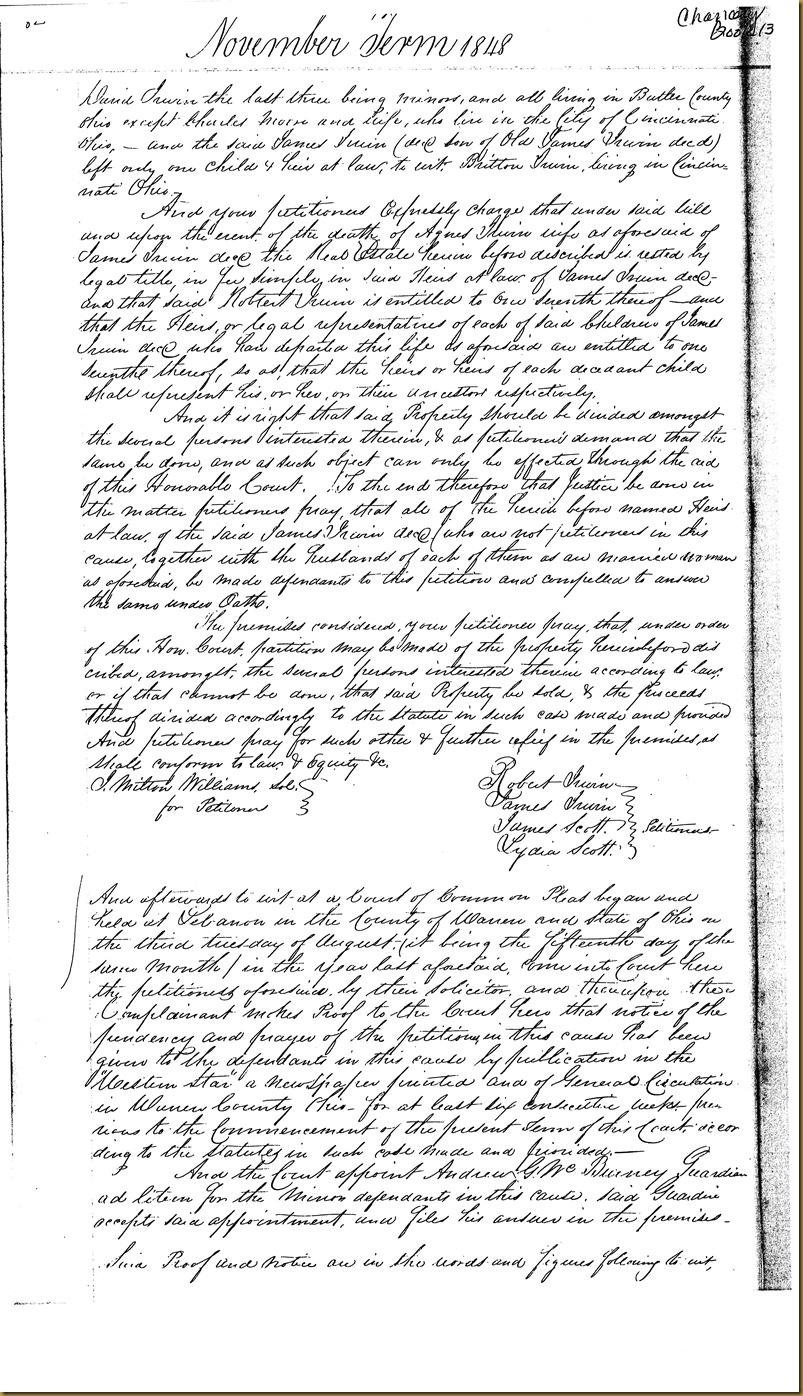 Chancery
Book 13
November Term 1848
David Irwin the last three being minors, and all living in Butler County
Ohio except Charles Moore and wife, who live in the City of Cincinnati
Ohio, — and the said James Irwin (decd son of Old James Irwin decd)
left only one child & heir at law, to wit: Britton Irwin, living in Cincin-
nati Ohio.
And your petitioners Expressly charge that under said will
and upon the event of the death of Agnes Irwin wife as aforesaid of
James Irwin decd the Real Estate herein before described is vested by
legal title, in fee simple, in said Heirs at law of James Irwin decd-
and that said Robert Irwin is entitled to one seventh thereof — and
that the Heirs, or legal representatives of each of said Children of James
Irwin decd who have departed this life as aforesaid are entitled to one
seventh thereof, so as, that the heirs or heirs of each decedant child
shall represent his, or her, or their ancestor respectively.
And it is right that said Property should be divided amongst
the several persons interested therein, & as petitioners demand that the
same be done, and as such object can only be effected through the aid
of this Honorable Court. To the end therefore that Justice be done in
the matter petitioners pray, that all of the herein before named Heirs
at law, of the said James Irwin decd (who are not petitioners in this
cause, together with the husbands of each of them as are married woman
as aforesaid, be made defendants to this petition and compelled to answer
the same under Oath.
The premises considered, your petitioners pray, that, under order
of this Hon. Court, partition may be made of the property hereinbefore dis
cribed, amongst, the several persons interested therein according to law,
or if that cannot be done, that said Property be sold, & the proceeds
thereof divided accordingly to the statute in such case made and provided
And petitioners pray for such other & further relief in the premises, as
shall conform to law & Equity &c.
J. Milton Williams, Sol.
for Petitioners
Robert Irwin
James Irwin
James Scott. Petitioners
Lydia Scott.
And afterwards to wit at a Court of Common Pleas began and
held at Lebanon in the County of Warren and State of Ohio on
the third tuesday of August (it being the fifteenth day of the
same month) in the year last aforesaid, come into Court here
the petitioners aforesaid by their solicitor, and thereupon the
Complainant makes Proof to the Court here that notice of the
pendency and prayer of the petition in this cause has been
given to the defendants in this cause by publication in the
"Western Star" a newspaper printed and of General Circulation
in Warren County Ohio for at least six consecutive weeks pre
vious to the Commencement of the present term of this Court accor
ding to the statutes in such case made and provided.—
And the Court appoint Andrew G. McBurney Guardian
ad litem for the minor defendants in this cause. said Guardian
accepts said appointment, and files his answer in the premises-
Said Proof and notice are in the words and figures following to wit,